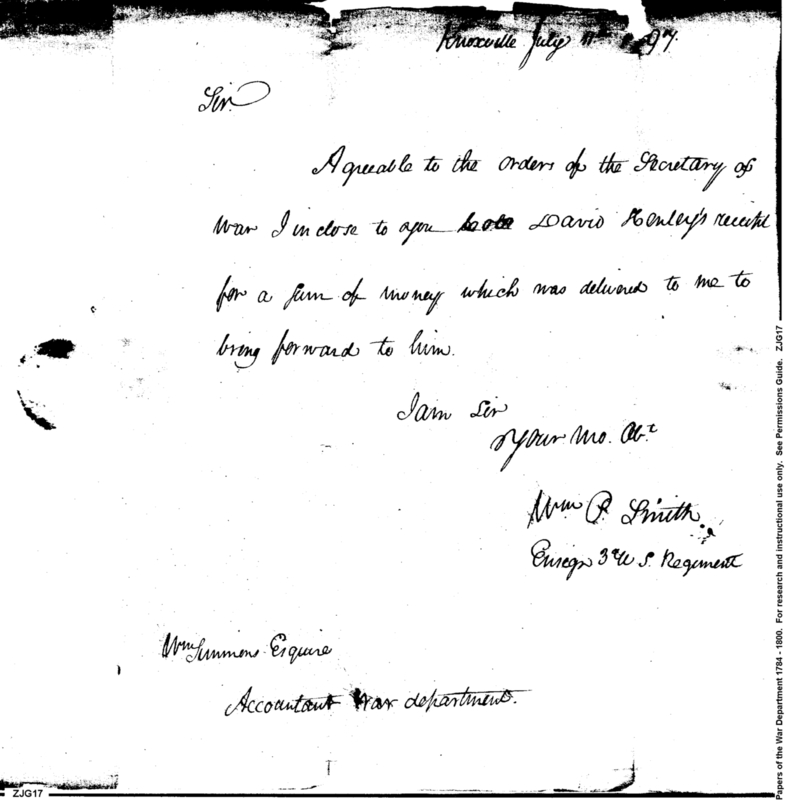 Knoxville July 11 97.
Sir.
Agreeable to the orders of the Secretary of
War I inclose to you David Henley's receipt
for a sum of money which was delivered to me to
bring forward to him.
I am Sir
Your Mo. Obt
Wm P. Smith
Ensign 3d U S. Regiment
Wm Simmons Esquire
Accountant War department.
ZJG17
Papers of the War Department 1784 - 1800. For research and instructional use only. See Permissions Guide. ZJG17